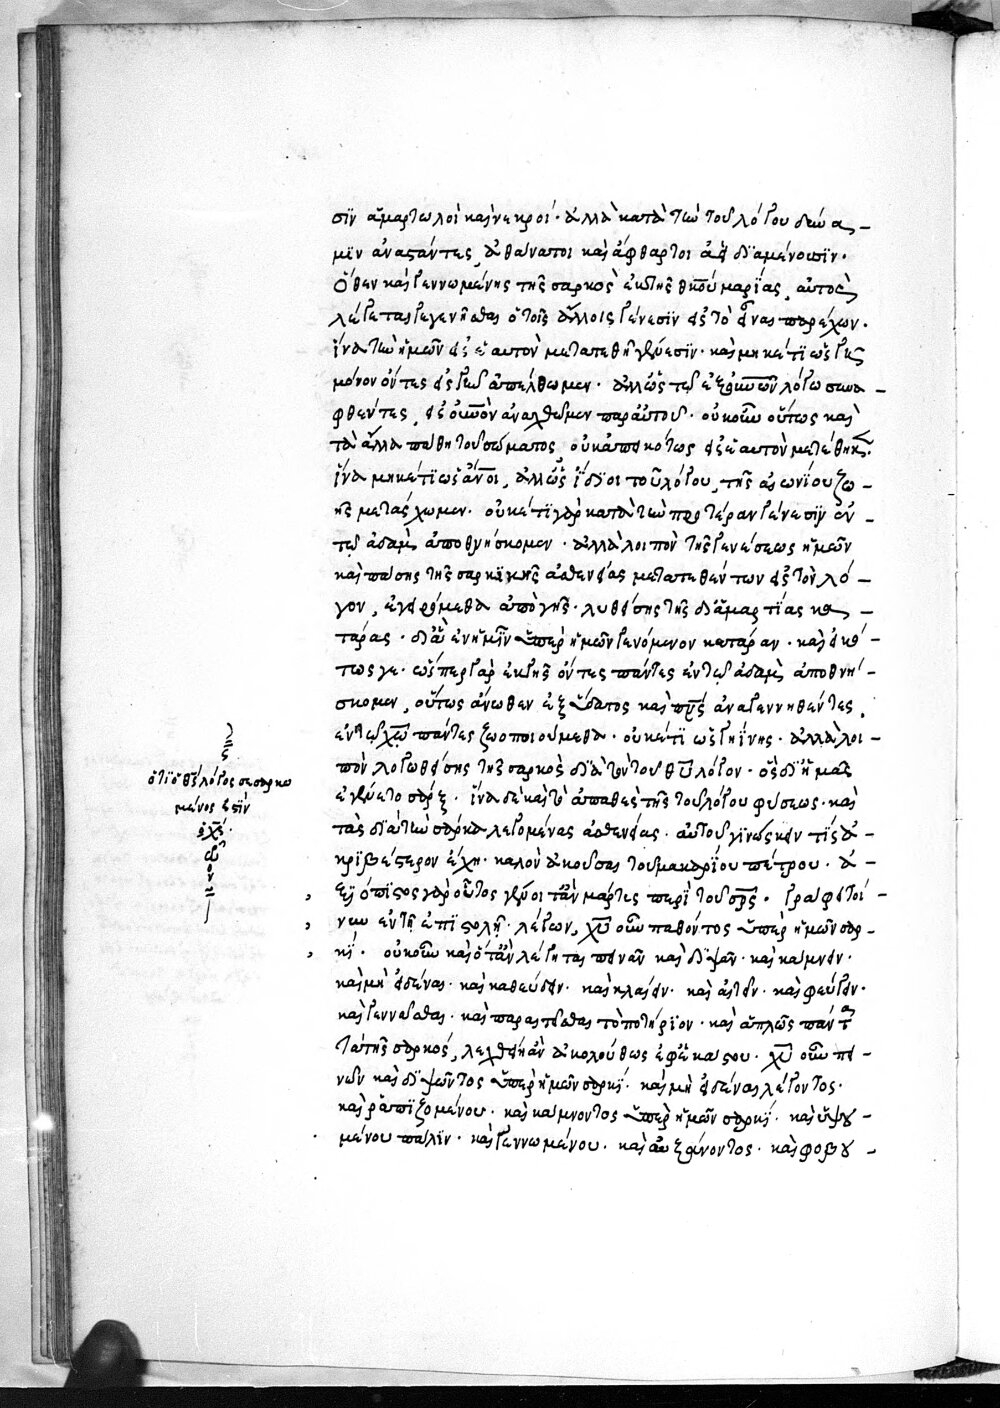 σϊν ἁμαρτωλοὶ καὶ νεκροί· ἀλλὰ κατὰ τὴν τοῦ λόγου δύνα_
μϊν ἀναστάντες, ἀθάνατοι καὶ ἄφθαρτοι ἀεὶ δϊαμένωσϊν·
Ὅθεν καὶ γεννωμένης τῆς σαρκὸς ἐκ τῆς θκου μαρΐας, αὐτὸς
λέγεται γεγενῆσθαι ὁ τοῖς ἄλλοις γένεσϊν εἰς τὸ εἶναι παρέχων·
ἵνα τὴν ἡμῶν εἰς ἑαυτὸν μεταθῇ γένεσϊν· καὶ μηκέτϊ ὡς γῆ
μόνον ὄντες εἰς γῆν ἀπέλθωμεν· ἀλλ' ὡς τῷ ἐξ οὐνῶν λόγω συνα_
φθέντες, εἰς οὐνὸν ἀναχθῶμεν παρ' αὐτοῦ· οὐκοῦν οὕτως καὶ
τὰ ἄλλα πάθη τοῦ σώματος, οὐκ ἀπεικότως εἰς ἑαυτὸν μετέθηκεν·
ἵνα μηκέτϊ ὡς ἄνοι, ἀλλ' ὡς ἴδϊοι τοῦ λόγου, τῆς αἰωνΐου ζω_
ῆς μετάσχωμεν· οὐκέτϊ γὰρ κατὰ τὴν προτέραν γένεσϊν ἐν_
τῷ ἀδὰμ ἀποθνήσκομεν· ἀλλὰ λοιπὸν τῆς γενέσεως ἡμῶν
καὶ πάσης τῆς σαρκϊκῆς ἀσθενείας μετατεθέντων εἰς τὸν λό_
γον, ἐγειρόμεθα ἀπὸ γῆς· λυθείσης τῆς δϊ' ἁμαρτΐας κα_
τάρας· δϊὰ ἐν ἡμῖν ὑπὲρ ἡμῶν γενόμενον κατάραν· καὶ εἰκό_
τως γε· ὥσπερ γὰρ ἐκ γῆς ὄντες πάντες ἐν τῷ ἀδὰμ ἀποθνή_
σκομεν, οὕτως ἄνωθεν ἐξ ὕδατος καὶ πνς ἀναγεννηθέντες,
ἐν τῷ χω πάντες ζωοποιούμεθα· οὐκέτϊ ὡς γηΐνης· ἀλλὰ λοι_
πὸν λογωθείσης τῆς σαρκὸς δϊὰ τὸν τοῦ θυ λόγον· ὃς δϊ' ἡμᾶς
ἐγένετο σάρξ· ἵνα δὲ καὶ τὸ ἀπαθὲς τῆς τοῦ λόγου φύσεως· καὶ
τὰς δϊὰ τὴν σάρκα λεγομένας ἀσθενείας· αὐτοῦ γϊνώσκειν τὶς ἀ_
κρϊβέστερον ἔχη· καλὸν ἀκοῦσαι τοῦ μακαρΐου πέτρου· ἀ_
ξϊόπϊστος γὰρ οὗτος γένοιτ' ἂν μάρτυς περὶ τοῦ σρς· γράφει τοί_
νυν ἐν τῇ ἐπϊστολῇ λέγων, χυ οὖν παθόντος ὑπὲρ ἡμῶν σαρ_
κΐ· οὐκοῦν καὶ ὅταν λέγηται πεινᾶν καὶ δϊψᾶν· καὶ κάμνειν·
καὶ μὴ εἰδέναι· καὶ καθεύδειν· καὶ κλαίειν· καὶ αἰτεῖν· καὶ φεύγειν·
καὶ γεννᾶσθαι· καὶ παραιτεῖσθαι τὸ ποτήρϊον· καὶ ἁπλῶς πάντα
τὰ τῆς σαρκός, λεχθείη ἂν ἀκολούθως ἐφ' ἑκάστου· χυ οὖν πει_
νῶν καὶ δϊψῶντος ὑπὲρ ἡμῶν σαρκΐ· καὶ μὴ εἰδέναι λέγοντος·
καὶ ῥαπϊζομένου· καὶ κάμνοντος ὑπὲρ ἡμῶν σαρκΐ· καὶ ὑψου_
μένου πάλϊν· καὶ γεννωμένου· καὶ αὐξάνοντος· καὶ φοβου_
ὅτϊ ὁ θς λόγος σεσαρκω
μένος ἐστϊν
ὁ χς·